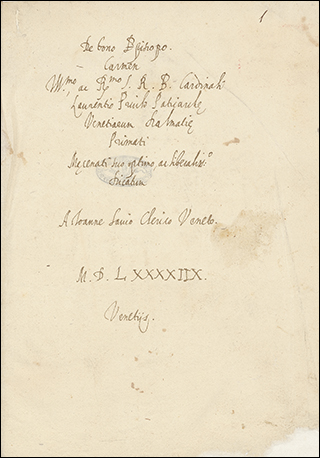 1
De bono Episcopo.
Carmen
Ill.mo ac R.mo S. R. E. Cardinali
Laurentio Priulo Patriarche
Venetiarum Dalmatie
Primati
Mecenati suo optimo ac liberaliss.o
dicatum
A Ioanne Savio Clerico Veneto.
M. D. L XXXXIIX.
Venetijs.